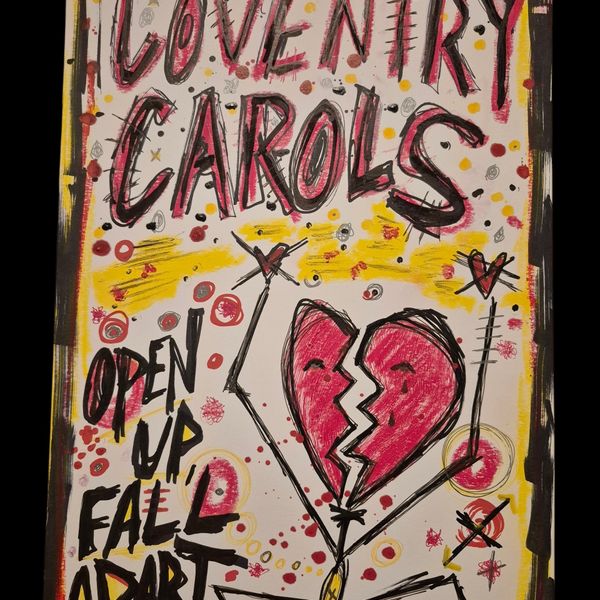 COVENTRY
CAROLS
OPEN
UP,
FALL
APART